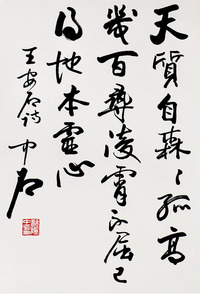 天質自森〻孤高
幾百尋凌霄不屈己
得地本虛心
王安石詩 中石